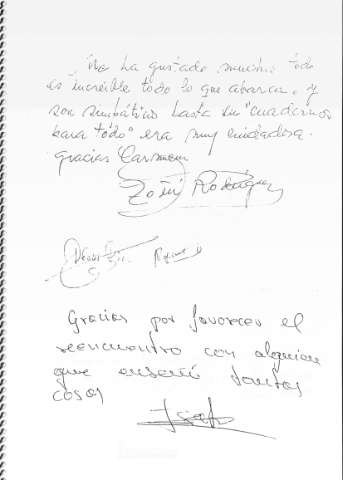 Me ha gustado mucho todo
es increíble todo lo que abarca. y
son simbático hasta su "cuadernos
para todo" era muy cuidadosa.
gracias Carmen
Zoñi Rodríguez
Gracias por favorecer el
reencuentro con alguien
que enseñó tantas
cosas